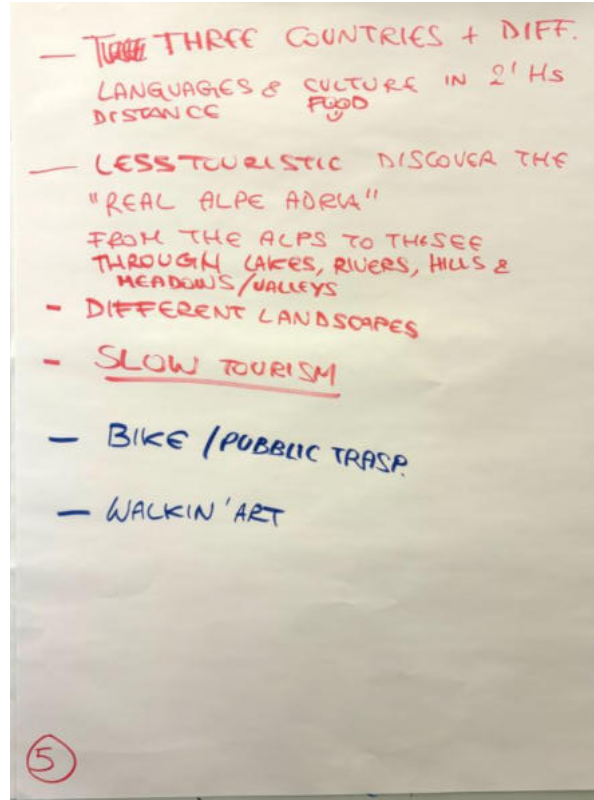 — THREE COUNTRIES + DIFF.
LANGUAGES & CULTURE IN 2' HS
DISTANCE FOOD
— LESS TOURISTIC DISCOVER THE
"REAL ALPE ADRIA"
FROM THE ALPS TO THE SEE
THROUGH LAKES, RIVERS, HILLS &
MEADOWS/VALLEYS
- DIFFERENT LANDSCAPES
- SLOW TOURISM
— BIKE / PUBBLIC TRASP.
— WALKIN' ART
5